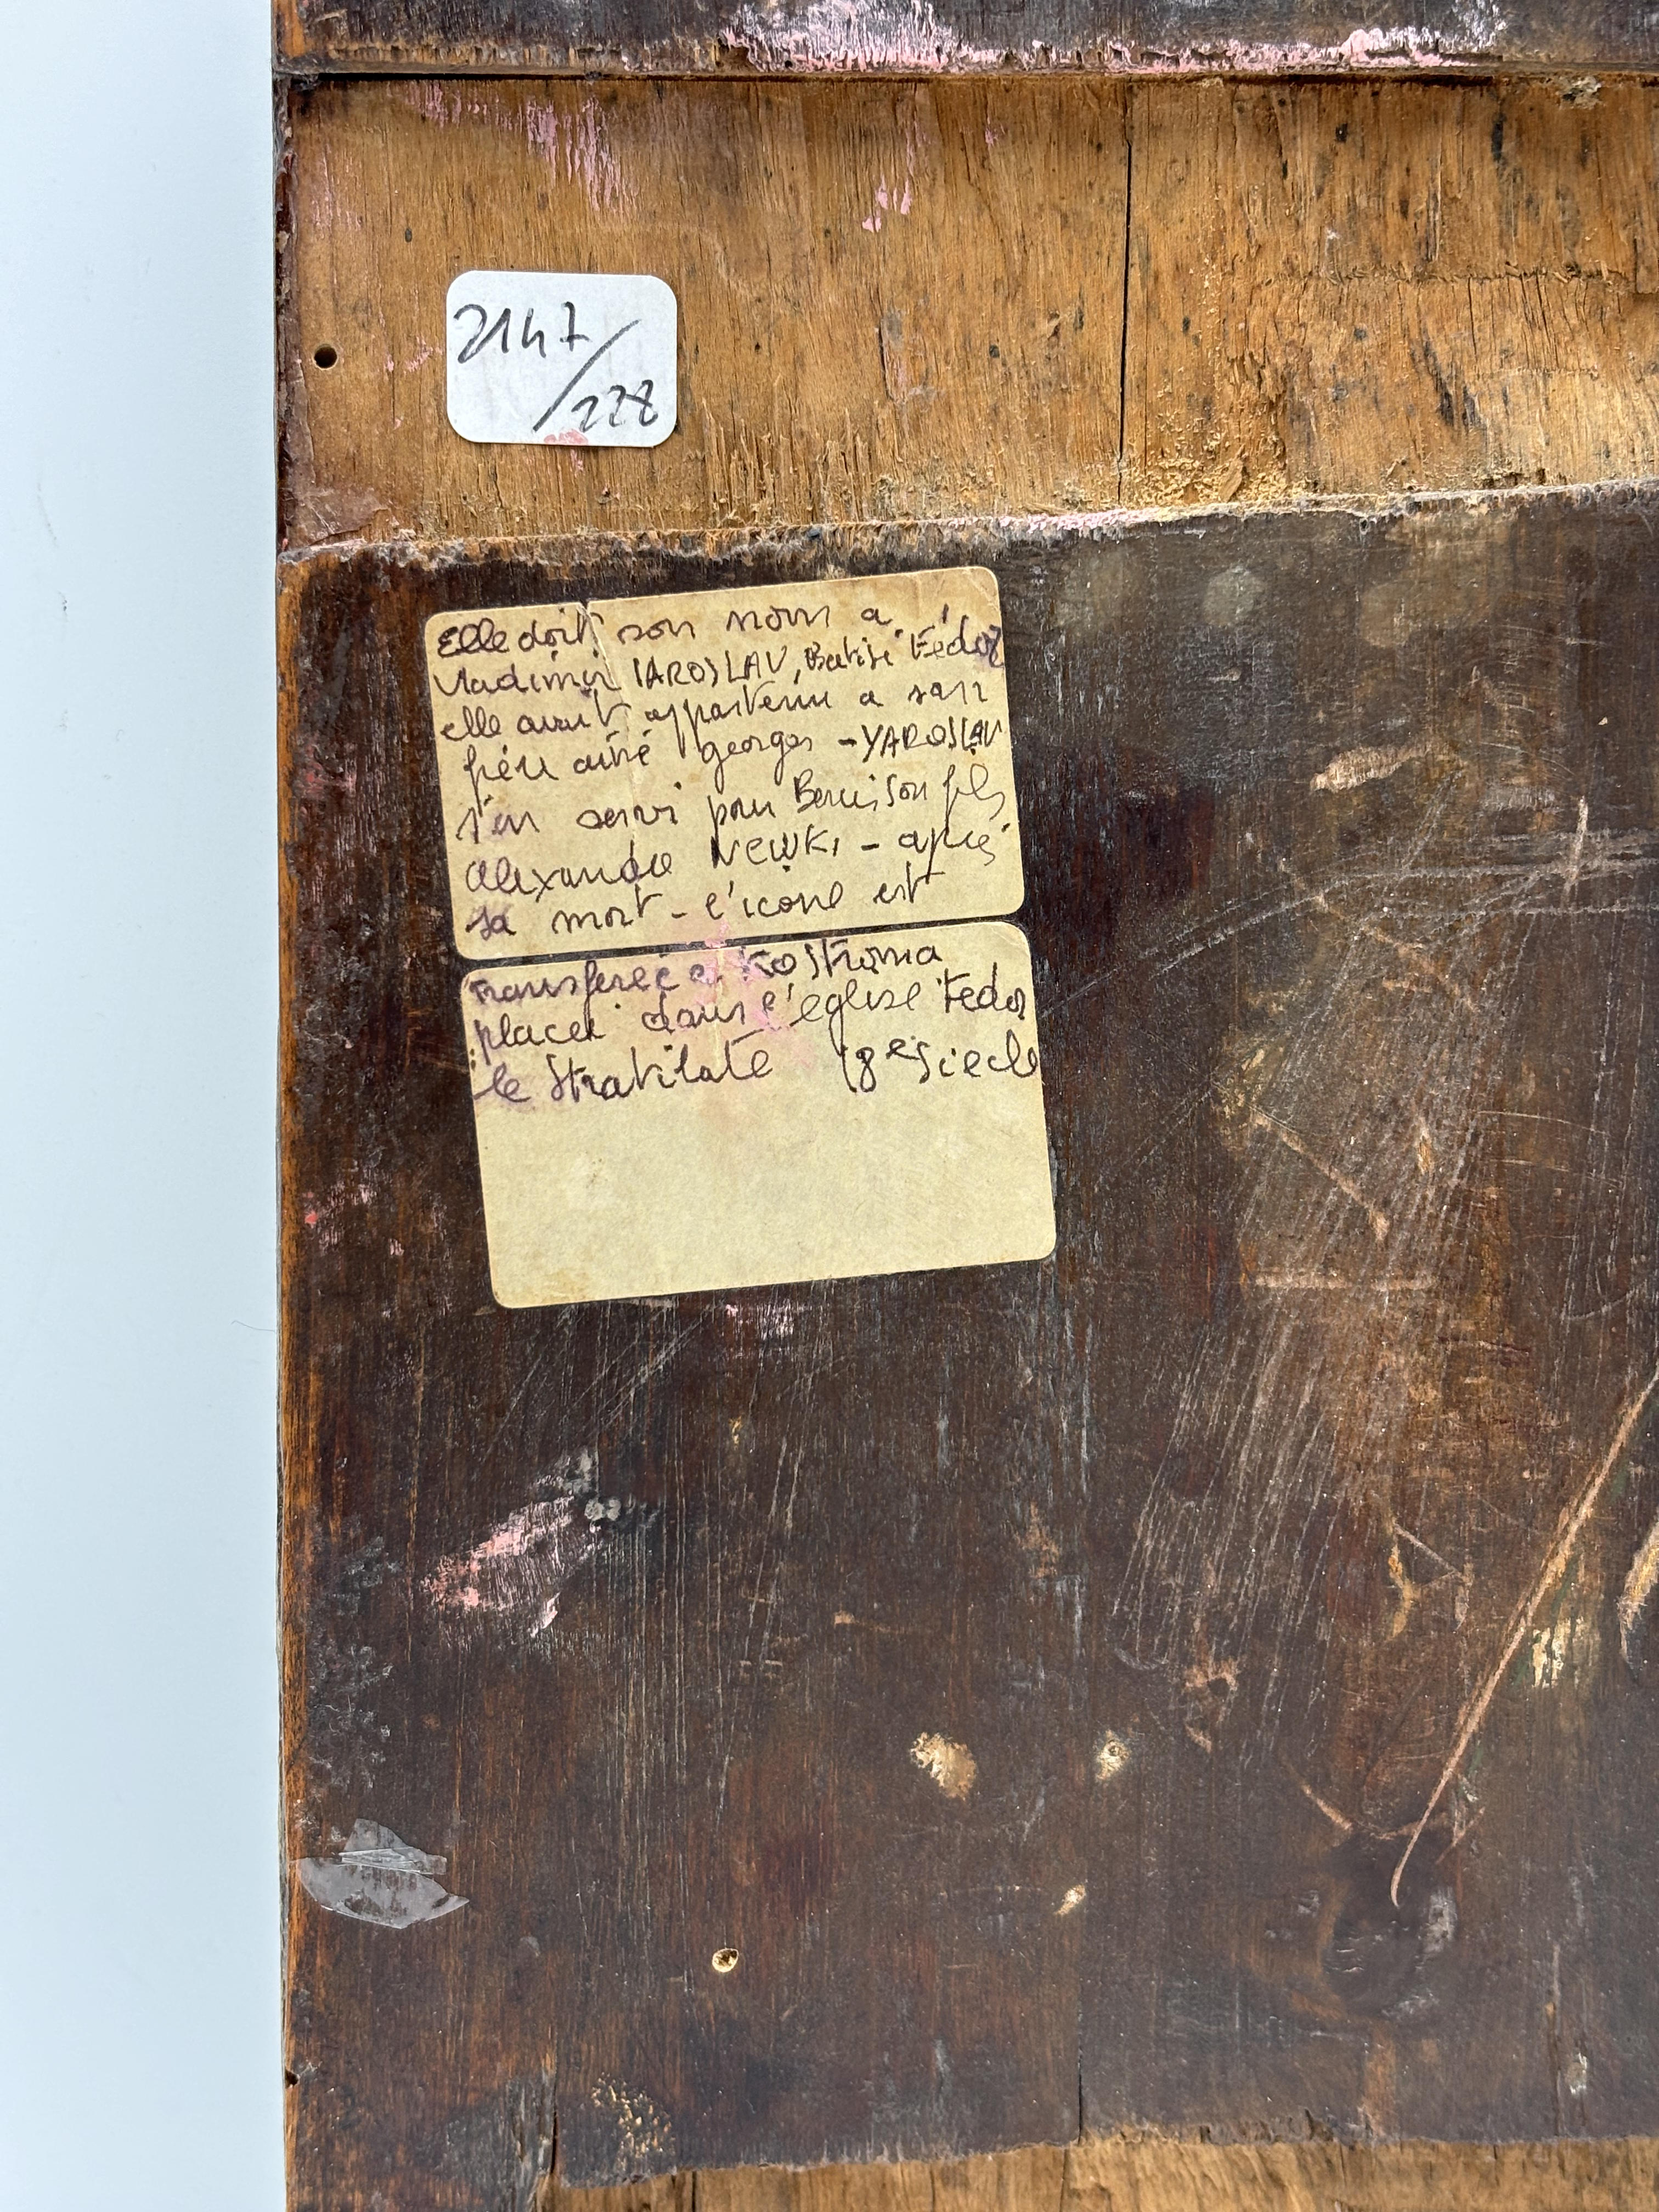 2147
/228
Elle doit son nom a
Vladimir IAROSLAV, Batisé Fédor
elle avait appartenu a son
frére ainé georges - YAROSLAV
s'en servi pour Benir son fils
Alexandre NEWKI - aprés
sa mort - l'icone est
transferée a Kostroma
placée dans l'eglise Fedor
le Stratilate 18e siecle